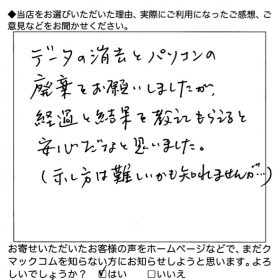 ◆当店をお選びいただいた理由、実際にご利用になったご感想、ご
意見などをお聞かせください。
データの消去とパソコンの
廃棄をお願いしましたが、
経過と結果を教えてもらえると
安心だなと思いました。
(示し方は難しいかも知れませんが…)
お寄せいただいたお客様の声をホームページなどで、まだク
マックコムを知らない方にお知らせしようと思います。よろ
しいでしょうか? ☑はい □いいえ